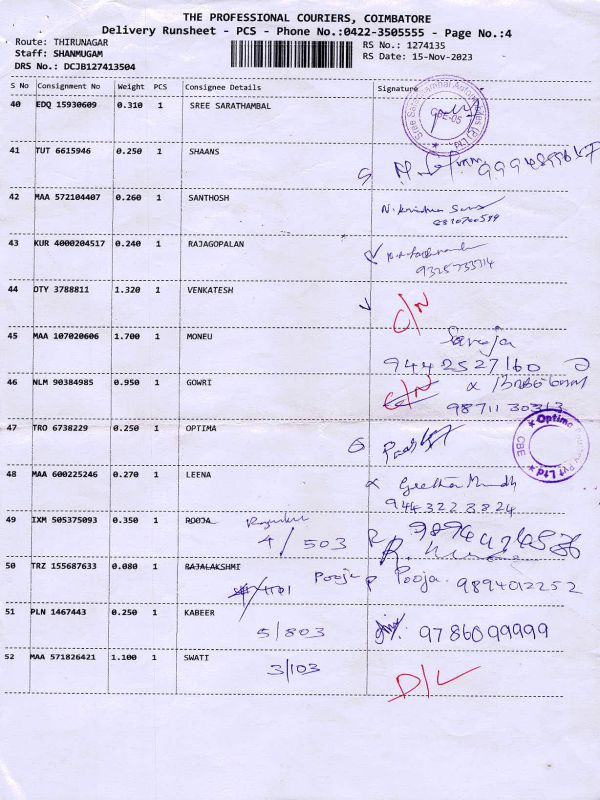 THE PROFESSIONAL COURIERS, COIMBATORE
Delivery Runsheet - PCS - Phone No.:0422-3505555 - Page No.:4
Route: THIRUNAGAR
Staff: SHANMUGAM
DRS No.: DCJB127413504
RS No.: 1274135
RS Date: 15-Nov-2023
S No Consignment No Weight PCS Consignee Details Signature
40 EDQ 15930609 0.310 1 SREE SARATHAMBAL
CBE-05
41 TUT 6615946 0.250 1 SHAANS
42 MAA 572104407 0.260 1 SANTHOSH
43 KUR 4000204517 0.240 1 RAJAGOPALAN
44 DTY 3788811 1.320 1 VENKATESH
C/N
45 MAA 107020606 1.700 1 MONEU
Saroja
9442527160
46 NLM 90384985 0.950 1 GOWRI
C/N
9871130313
47 TRO 6738229 0.250 1 OPTIMA
Optima
Pvt Ltd
CBE
48 MAA 600225246 0.270 1 LEENA
9443228824
49 IXM 505375093 0.350 1 ROOJA
4/503
50 TRZ 155687633 0.080 1 RAJALAKSHMI
Pooja Pooja. 9894012252
51 PLN 1467443 0.250 1 KABEER
5/803 9786099999
52 MAA 571826421 1.100 1 SWATI
3/103
D/L